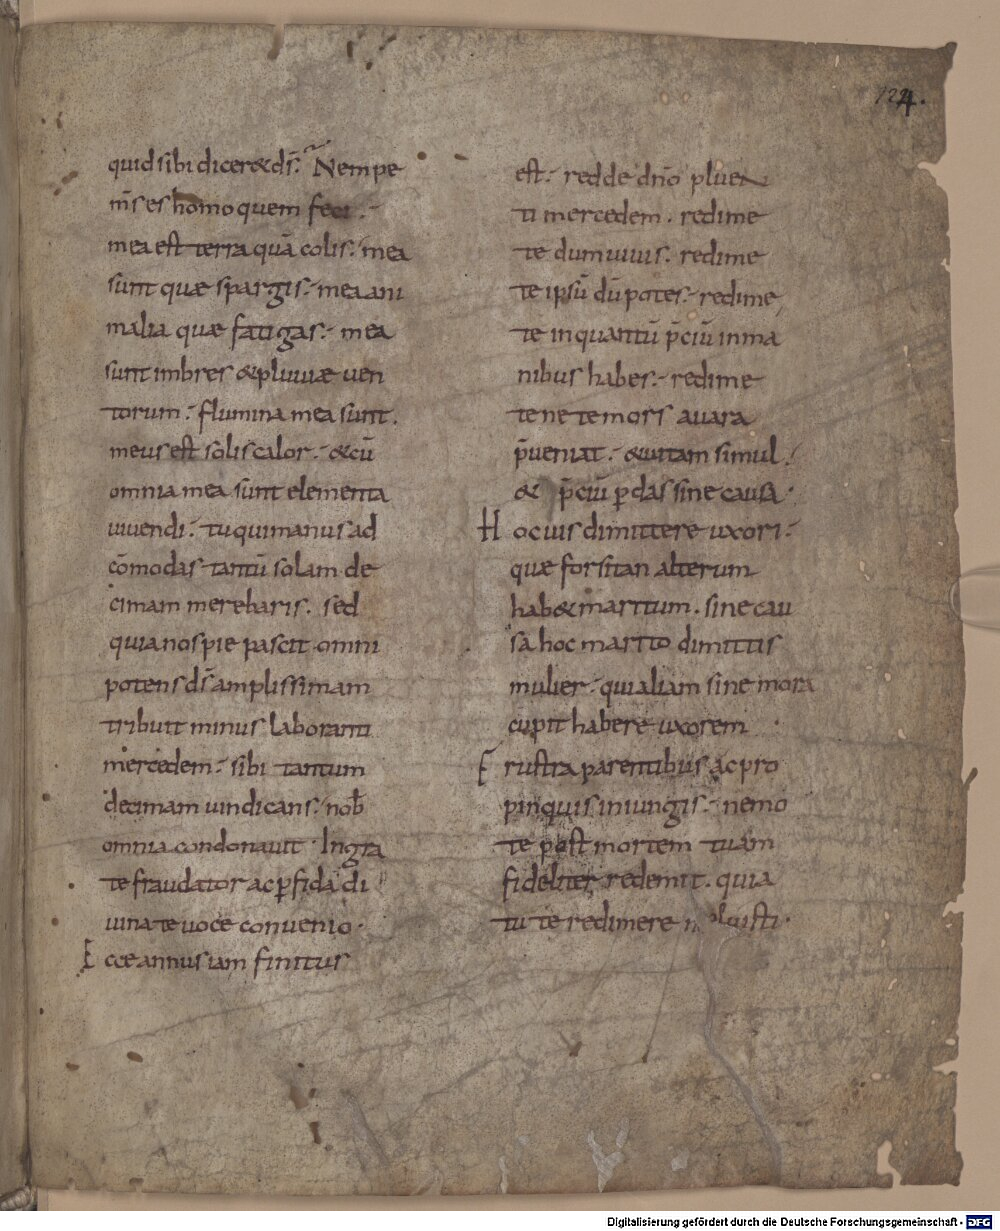 124.
quid sibi dicer&d̄s. Nempe
m̄s es homo quem feci.
mea est terra quā colis. mea
sunt quæ spargis. mea ani
malia quæ fatigas. mea
sunt imbres &pluuiæ uen
torum. flumina mea sunt.
meus est solis calor. &cū
omnia mea sunt elementa
uiuendi. tu qui manus ad
cōmodas tantū solam de
cimam merebaris. sed
quia nos pie pascit omni
potens d̄s amplissimam
tribuit minus laboranti
mercedem. sibi tantum
decimam uindicans. nob̄
omnia condonauit. Ingra
te fraudator ac p̄fida di
uina te uoce conuenio.
Ecce annus iam finitus
est. redde dn̄o pluen
ti mercedem. redime
te dum uiuis. redime
te ipsū dū potes. redime
te inquantū p̄ciū in ma
nibus habes. redime
te ne te mors auara
p̄ueniat. &uitam simul.
& p̄ciū p̄das sine causa.
Hoc uis dimittere uxori.
quæ forsitan alterum
hab& maritum. sine cau
sa hoc marito dimittis
mulier. qui aliam sine mora
cupit habere uxorem
Frustra parentibus ac pro
pinquis iniungis. nemo
te post mortem tuam
fideliter redemit. quia
tu te redimere noluisti.
Digitalisierung gefördert durch die Deutsche Forschungsgemeinschaft - DFG